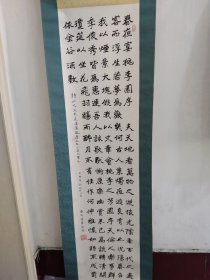 春夜宴桃李園序　夫天地者萬物之逆旅光陰者百代之過
客而浮生若夢為歡幾何古人秉燭夜遊良有以也況陽春召
我以煙景大塊假我以文章會桃李之芳園序天倫之樂事群
季俊秀皆為惠連吾人詠歌獨慚康樂幽賞未已高談轉清開
瓊筵以坐花飛羽觴而醉月不有佳作何伸雅懷如詩不成罰
依金谷酒數